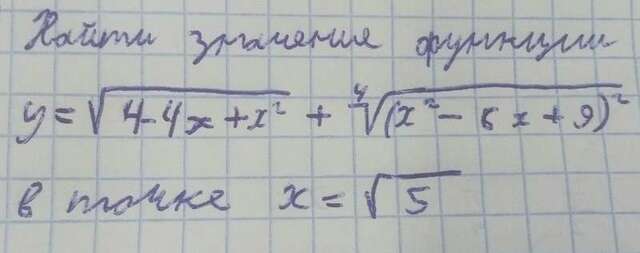 Найти значения функции
y = √(4-4x+x²) + ⁴√((x²-6x+9)²)
в точке x = √5